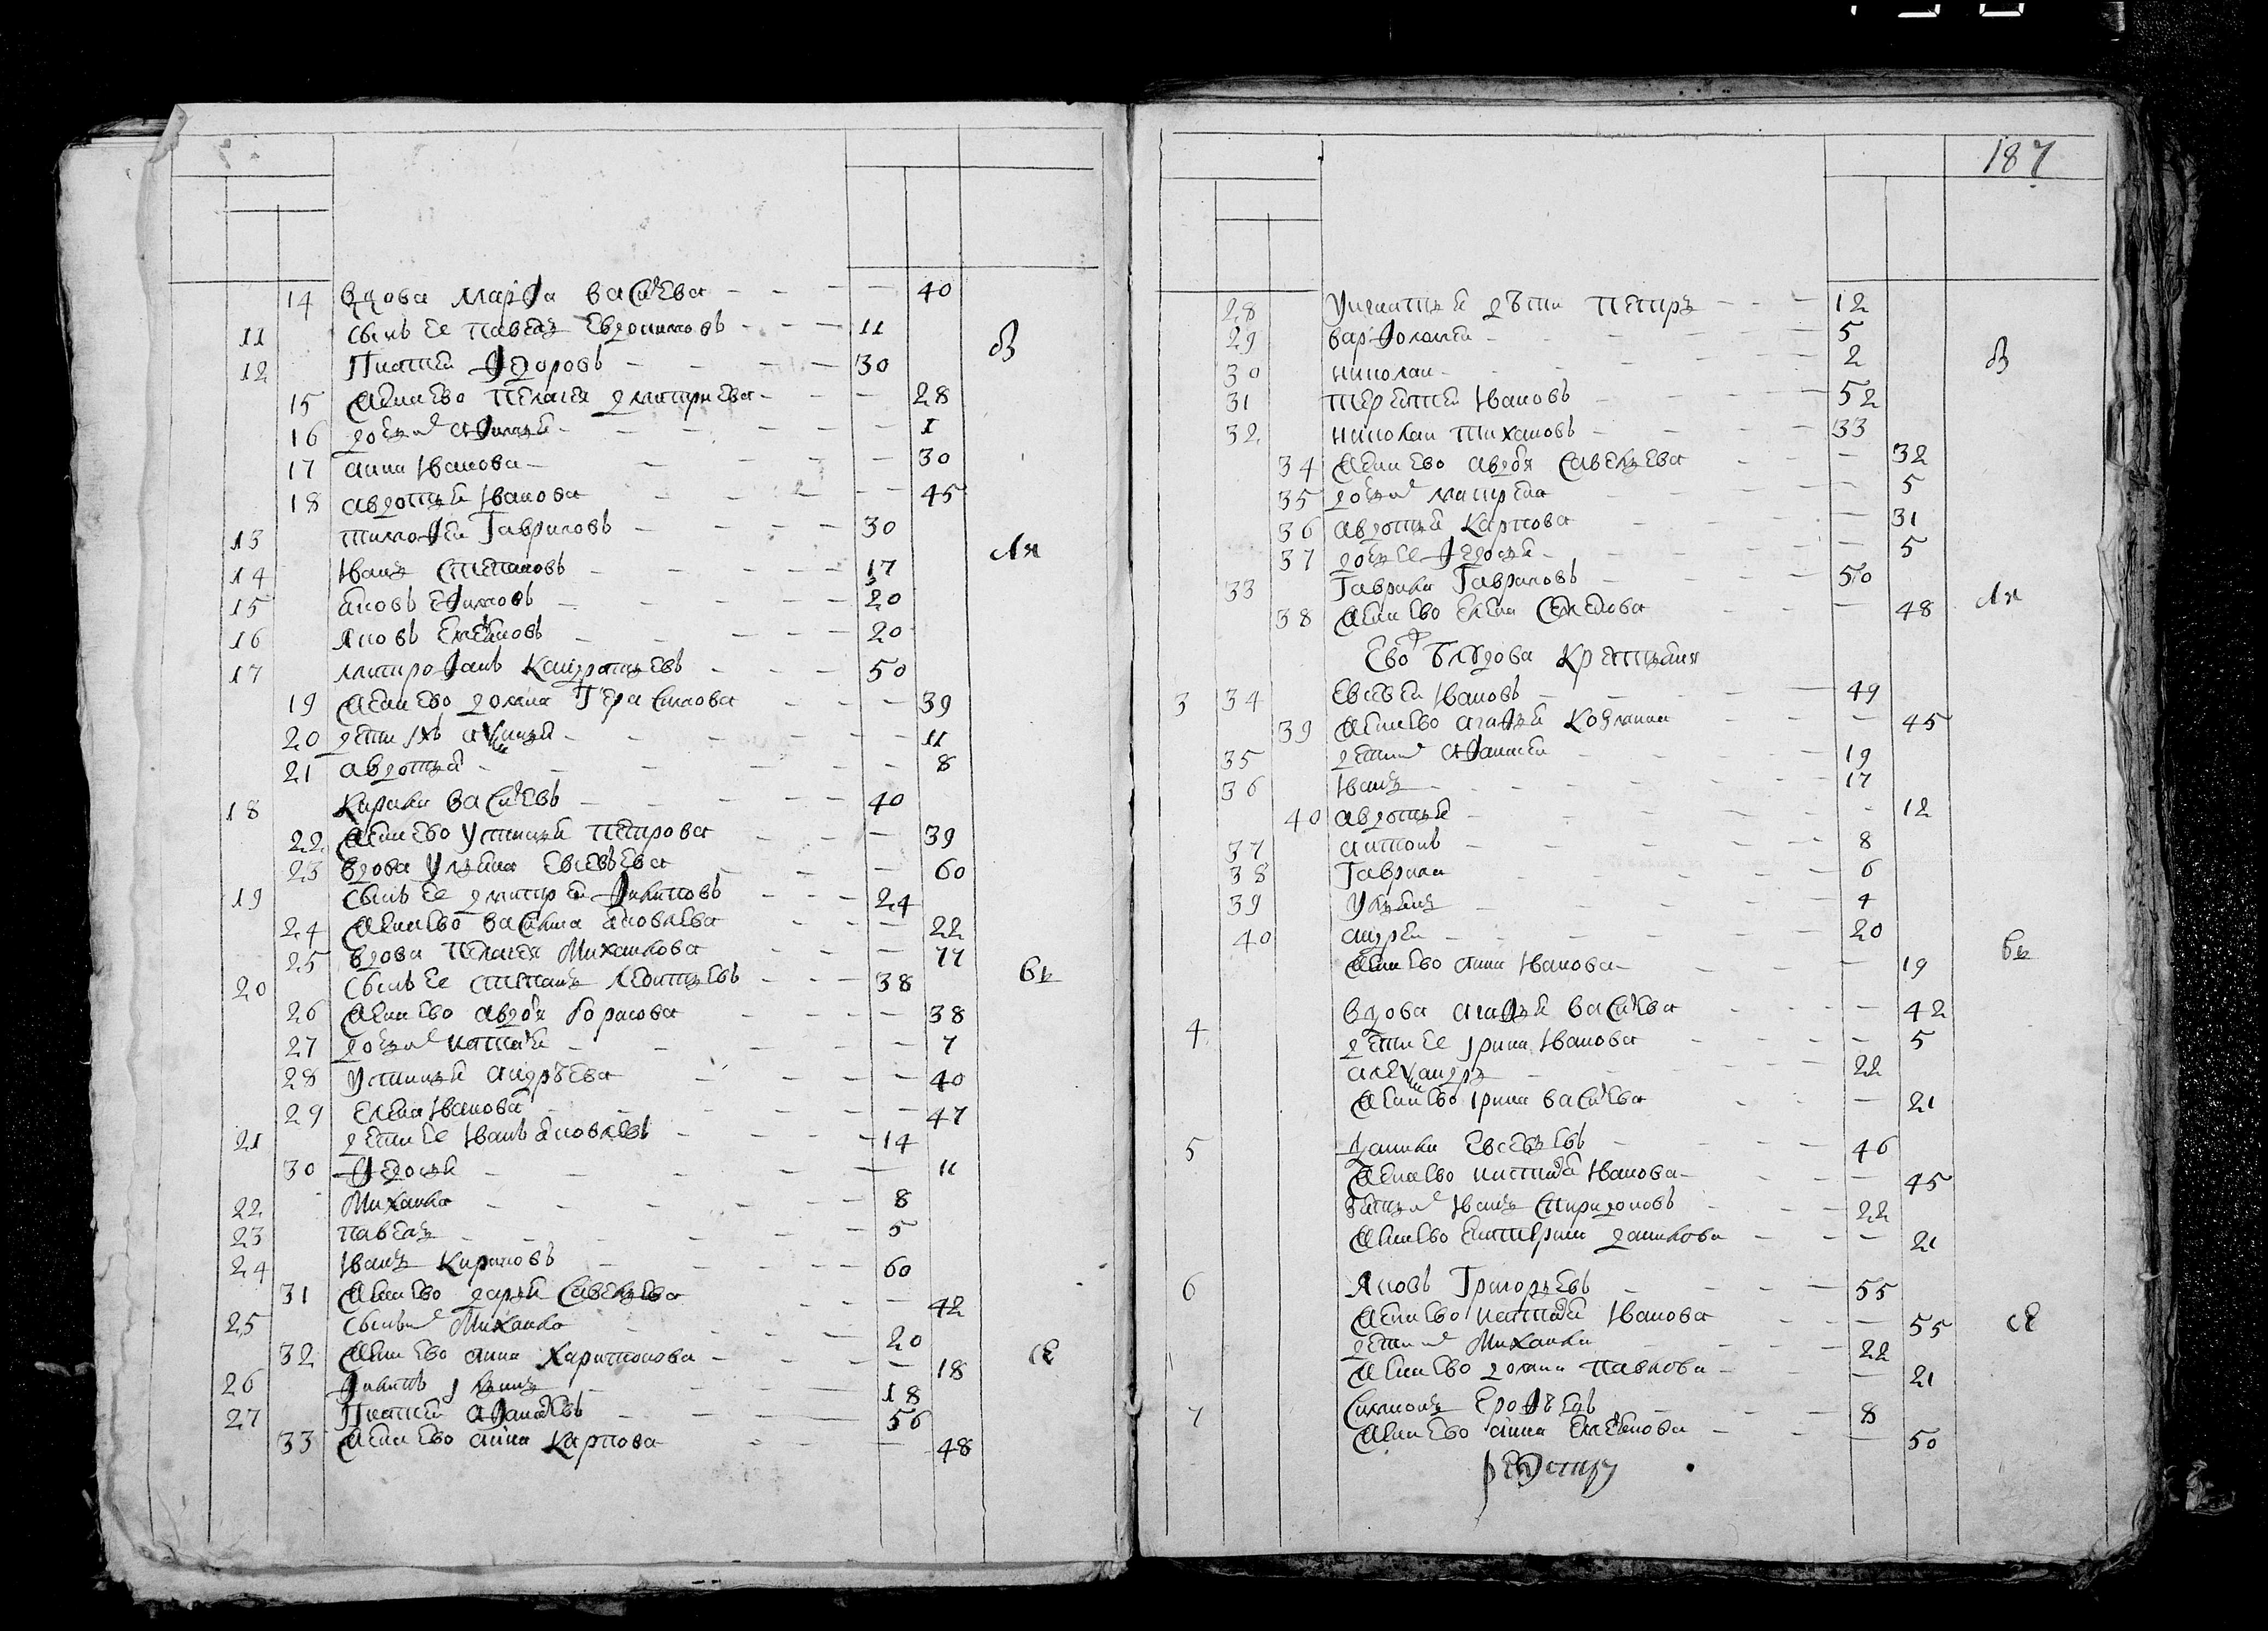 187
14 вдова марфа васильева 40
11 сынъ ее павелъ евдокимовъ 11
12 Игнатей федоровъ 30
В
15 жена ево пелагея дмитриева 28
16 дочь их афимья 1
17 анна Иванова 30
18 авдотья Иванова 45
13 тимофей Гавриловъ 30
14 Иванъ Степановъ 17
Ля
15 аковъ ефимовъ 20
16 Яковъ Семеновъ 20
17 митрофанъ Кондратьевъ 50
19 жена ево домна Герасимова 39
20 дети ихъ аксинья 11
21 авдотья 8
18 Кирила васильевъ 40
22 жена ево устинья петрова 39
23 вдова ульяна евсевьева 60
19 сынъ ее дмитрей филиповъ 24
24 жена ево василиса аковлева 22
25 вдова пелагея Михаилова 77
20 сынъ ее степанъ леонтьевъ 38
бъ
26 жена ево авдотья борисова 38
27 дочь их наталья 7
28 устинья андрѣева 40
29 елена Иванова 47
21 дети ее Иванъ аковлевъ 14
30 федосья 11
22 Михаила 8
23 павелъ 5
24 Иванъ Кириловъ 60
31 жена ево дарья Савельева 42
25 сынъ их Михаила 20
32 жена ево анна Харитонова 18
се
26 филипъ 18
27 Игнатей афанасьевъ 56
33 жена ево анна Карпова 48
28 Игнатьевы дѣти петръ 12
29 варфоломей 5
В
30 николай 2
31 терентей Ивановъ 52
32 николай тихановъ 33
34 жена ево авдотья Савельева 32
35 дочь их матрена 5
36 авдотья Карпова 31
37 дочь ее федосья 5
33 Гаврила Гавриловъ 50
Ля
38 жена ево елена Семенова 48
Ево Крестьяня
3 34 евсевей Ивановъ 49
39 жена ево агафья Козмина 45
35 дети их афанасей 19
36 Иванъ 17
40 авдотья 12
37 антонъ 8
38 Гаврила 6
39 ульянъ 4
40 андрей 20
бъ
жена ево анна Иванова 19
вдова агафья васильева 42
4 дети ее ирина Иванова 5
александръ 22
жена ево ирина васильева 21
5 данила евсевьевъ 46
жена ево настасья Иванова 45
зять их Иванъ Спиридоновъ 22
жена ево катерина данилова 21
6 Яковъ Григорьевъ 55
жена ево наталья Иванова 55
се
дети их Михаила 22
жена ево домна павлова 21
7 Симионъ ерофѣевъ 8
жена ево анна Семенова 50